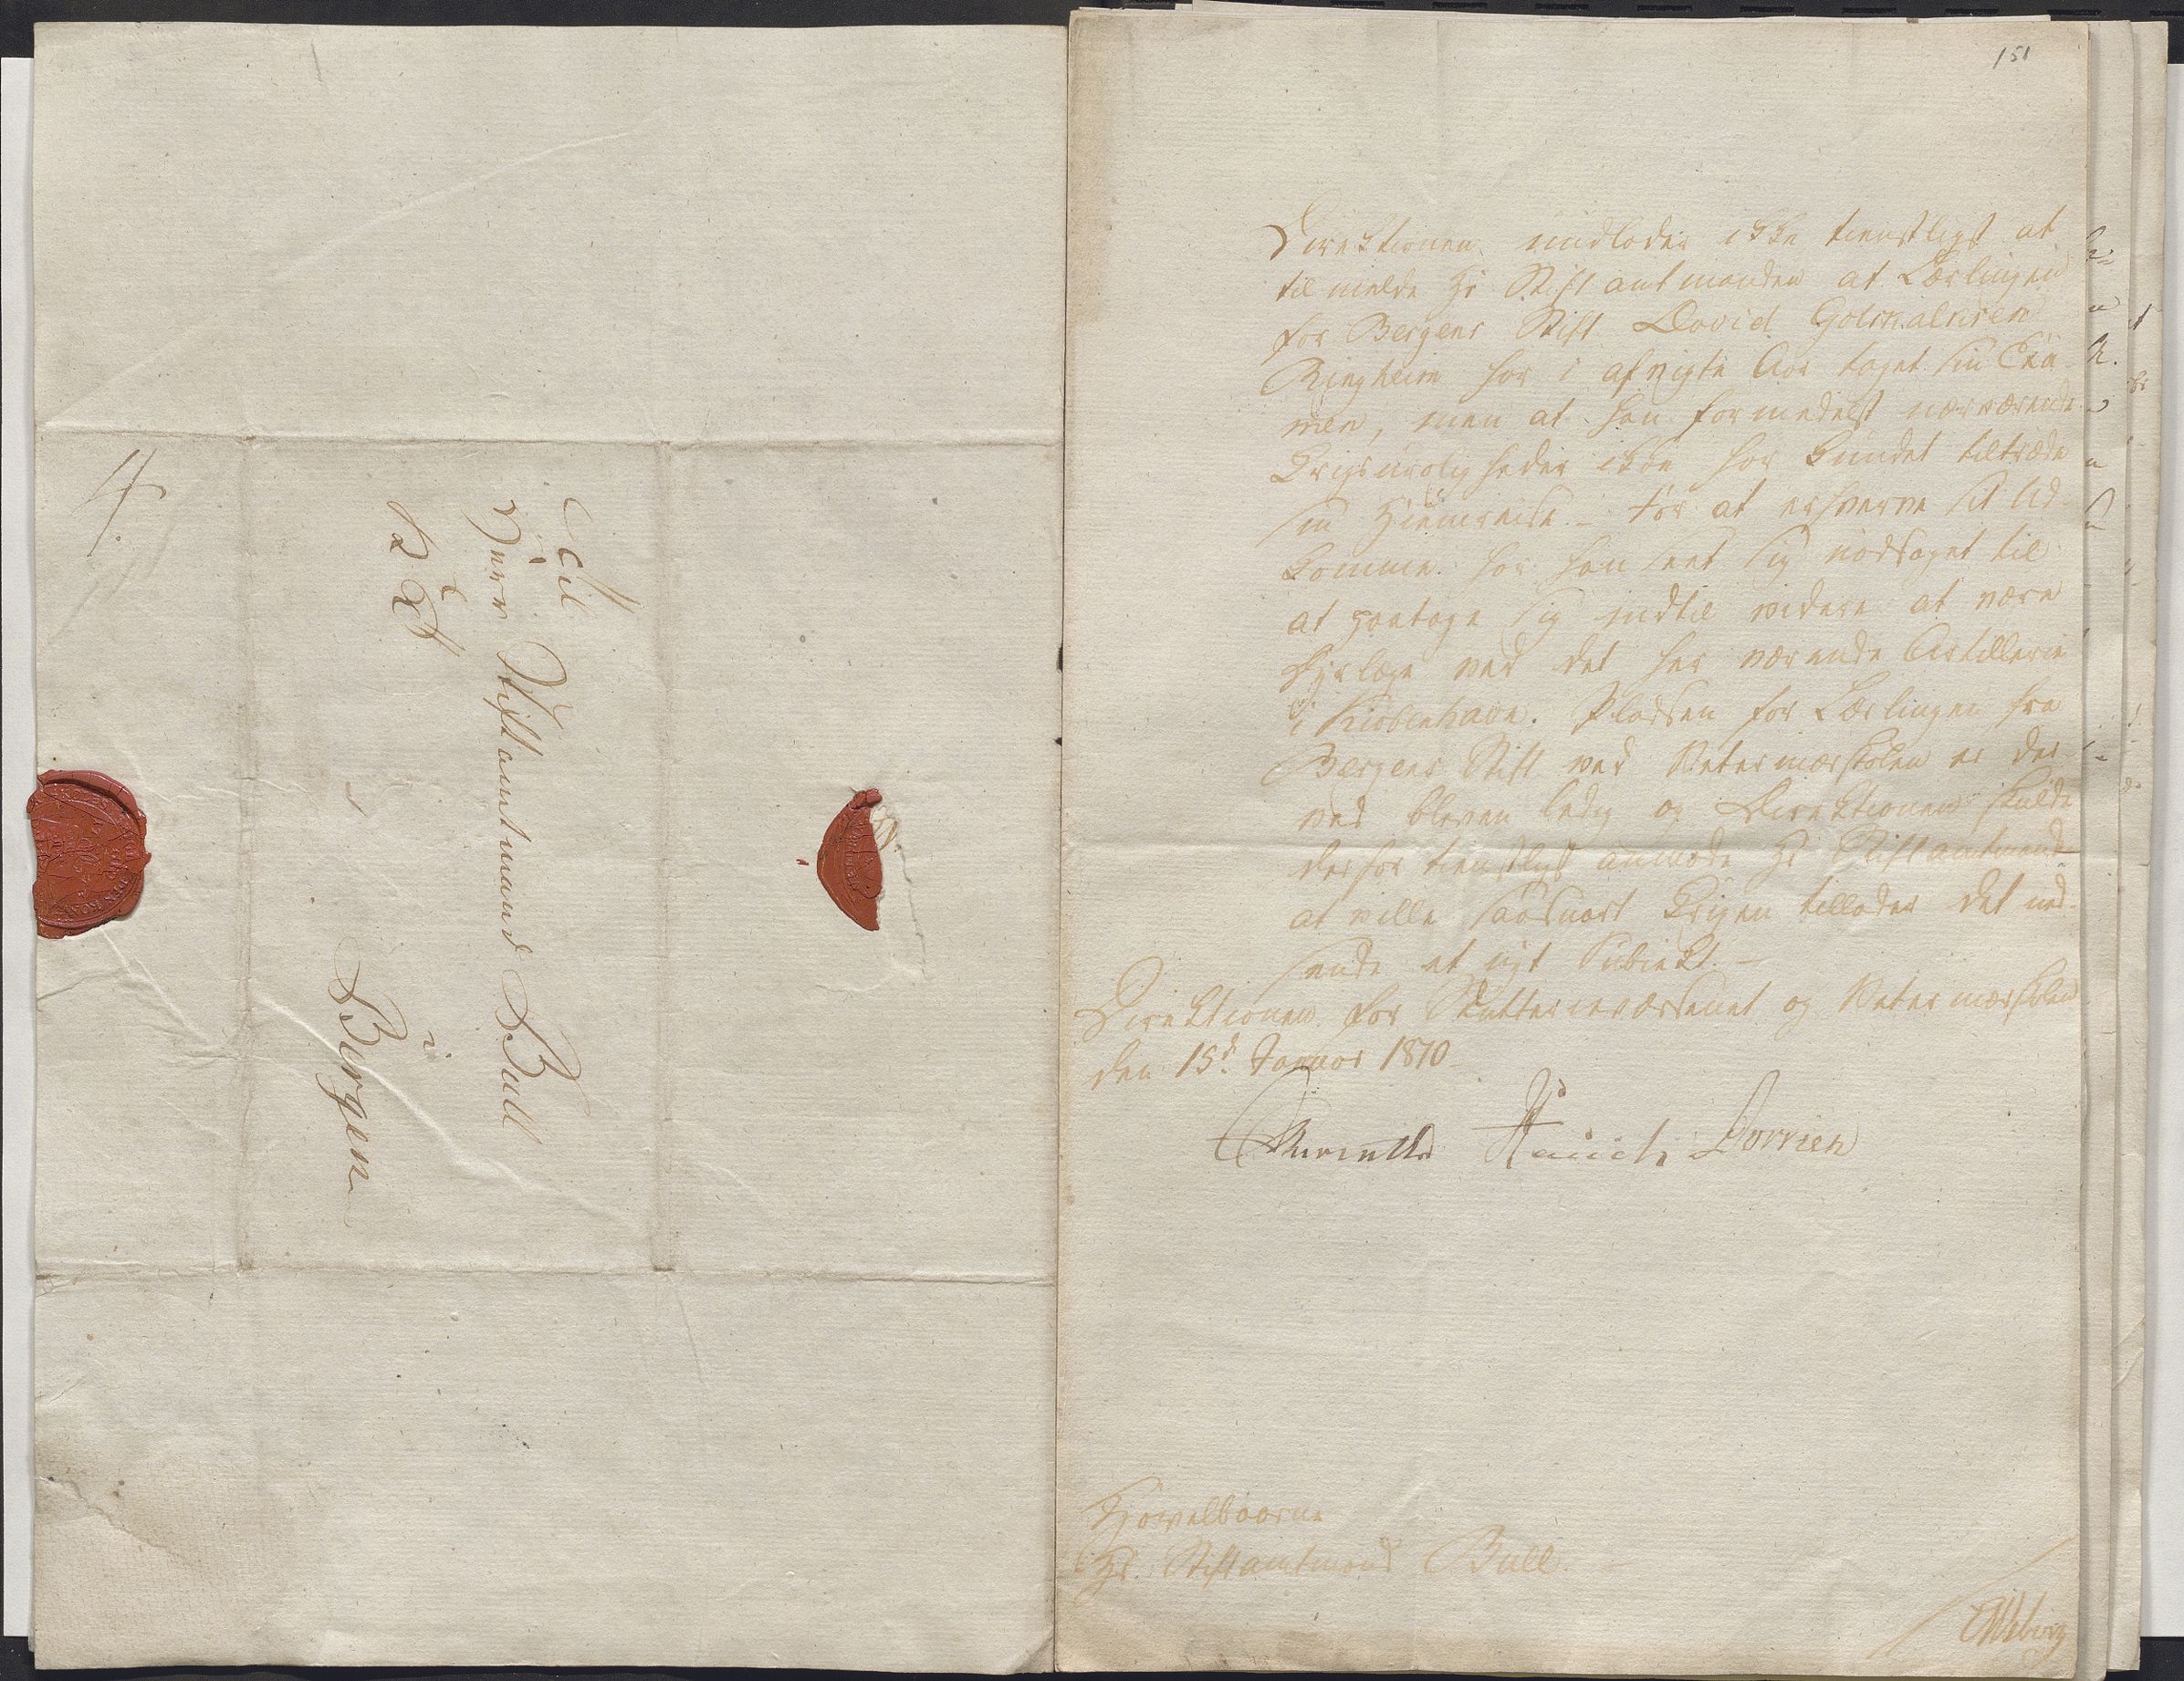 Til
Herr Stiftamtmand Bull
i
Bergen
4.
151
Direktionen undlader ikke tienstligst at
tilmelde Hr Stiftamtmanden at Lærlingen
for Bergens Stift David Gotskalksen
Ringheim har i afvigte Aar taget sin Exa-
men, men at han formedelst nærværende
Krigsuroligheder ikke har kundet tiltræde
sin Hiemreise. - For at erhverve sit Ud-
komme har han seet sig nødsaget til
at paatage sig indtil videre at være
Dyrlæge ved det her værende Artillerie
i Kiøbenhavn. Pladsen for Lærlingen fra
Bergens Stift ved Veterinærskolen er der-
ved bleven ledig og Direktionen skulde
derfor tienstligst anmode Hr Stiftamtmand
at ville saasnart Krigen tillader det ned-
sende et nyt Subiekt. -
Direktionen for Stutterievæsenet og Veterinærskolen
den 15d Januar 1810
Hauch Dorrien
Høivelbaarne
Hr. Stiftamtmand Bull.
Viborg